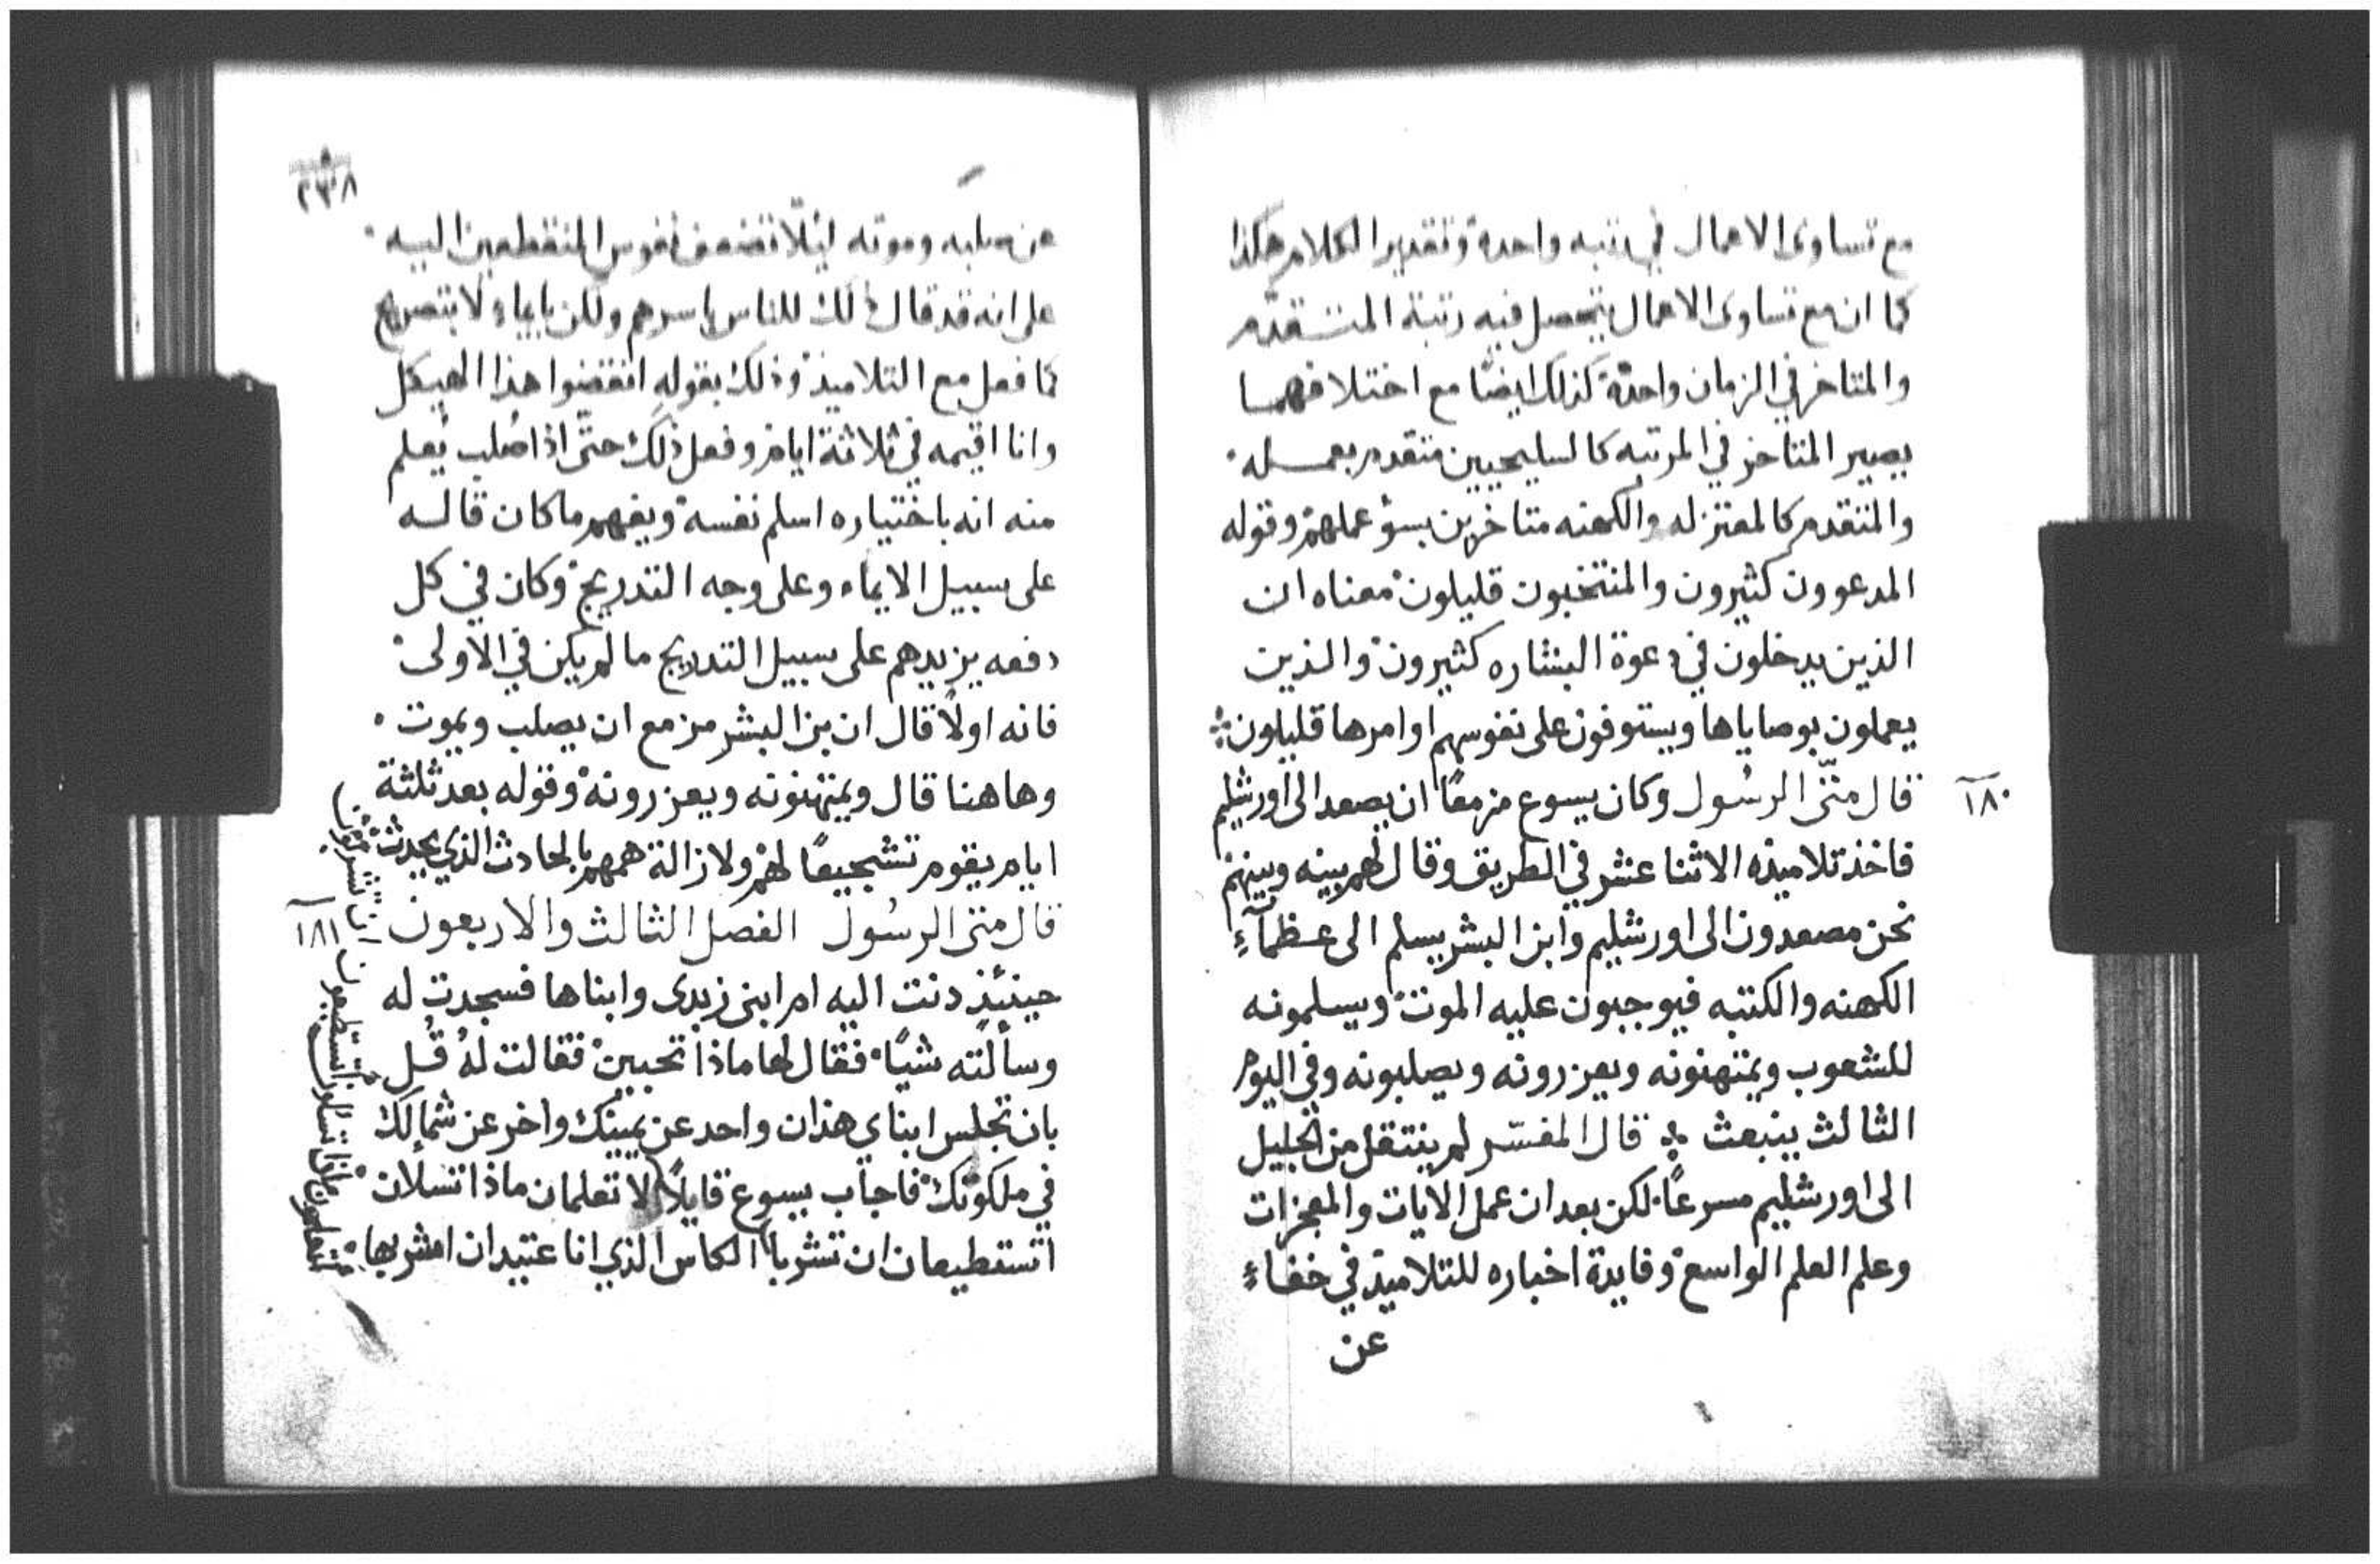 مع تساوى الاعمال في رتبه واحدة وتقدير الكلام هكذا
كما ان مع تساوى الاعمال يتحصل فيه رتبة المتقدم
والمتاخر في الزمان واحدة كذلك ايضًا مع اختلافهما
يصير المتاخر في المرتبه كالسليحيين متقدم بعمله
والمتقدم كالمعتزله والكهنه متاخرين بسؤ عملهم وقوله
المدعوون كثيرون والمنتخبون قليلون معناه ان
الذين يدخلون في دعوة البشاره كثيرون والذين
يعملون بوصاياها ويستوفون على نفوسهم اوامرها قليلون
١٨٠
قال متّى الرسُول وكان يسوع مزمعًا ان يصعد الى اورشليم
فاخذ تلاميذه الاثنا عشر في الطريق وقال لهم بينه وبينهم
نحن مصعدون الى اورشليم وابن البشر يسلم الى عظمآءِ
الكهنه والكتبه فيوجبون عليه الموت ويسلمونه
للشعوب ويمتهنونه ويعزرونه ويصلبونه وفى اليوم
الثالث ينبعث قال المفسّر لم ينتقل من الجليل
الى اورشليم مسرعًا لكن بعد ان عمل الايات والمعجزات
وعلم العلم الواسع وفايدة اخباره للتلاميذ في خفاءٍ
عن
٢٣٨
عن صلبه وموته لئلّا تضعف نفوس المنقطعين اليه
على انه قد قال ذلك للناس باسرهم ولكن بايماءٍ لا بتصريح
كما فعل مع التلاميذ وذلك بقوله انقضوا هذا الهيكل
وانا اقيمه في ثلاثة ايام وفعل ذلك حتّى اذا صُلب يُعلم
منه انه باختياره اسلم نفسه ويفهم ما كان قاله
على سبيل الايماء وعلى وجه التدريج وكان في كل
دفعه يزيدهم على سبيل التدريج ما لم يكن في الاولى
فانه اولًا قال ان بن البشر مزمع ان يصلب ويموت
وهاهنا قال ويمتهنونه ويعزرونه وقوله بعد ثلثة
ايام يقوم تشجيعًا لهم ولازالة همهم بالحادث الذي يحدث
قال متى الرسُول الفصل الثالث والاربعون
١٨١
حينئذٍ دنت اليه ام ابنى زبدى وابناها فسجدت له
وسألته شيًا فقال لها ماذا تحبين فقالت لهُ قُل
بان تجلس ابناي هذان واحد عن يمينك واخر عن شمالك
في ملكوتك فاجاب يسوع قايلًا لا تعلمان ماذا تسلان
اتستطيعان ان تشربا الكاس الذي انا عتيد ان اشربها
تعلمون ماذا تسلون اتستطيعون ان تشربوا